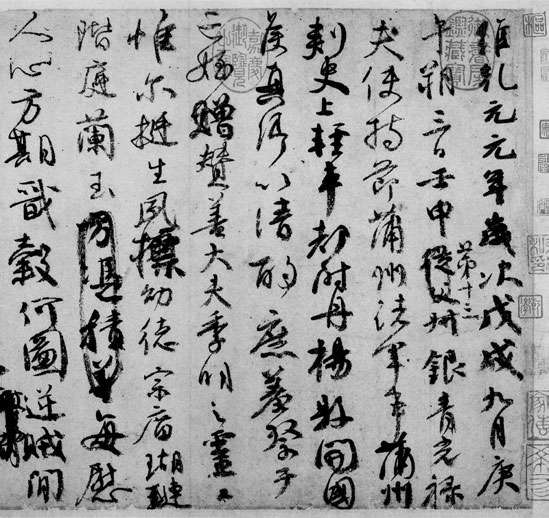 維乾元元年歲次戊戌九月庚
午朔三日壬申第十三叔銀青光祿
夫使持節蒲州諸軍事蒲州
刺史上輕車都尉丹楊縣開國
侯真卿以清酌庶羞祭于
亡姪贈贊善大夫季明之靈曰
惟爾挺生夙標幼德宗廟瑚璉
階庭蘭玉方憑積善每慰
人心方期戩穀何圖逆賊間